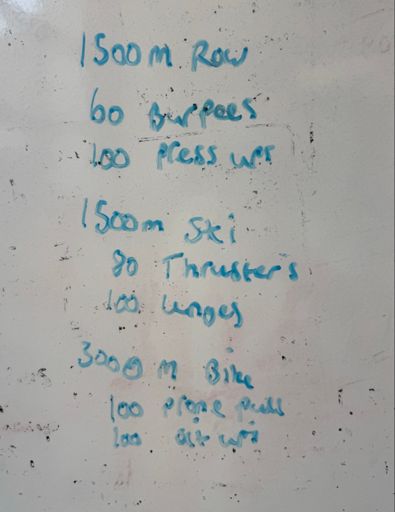 1500m Row
60 Burpees
100 Press ups
1500m Ski
80 Thrusters
100 Lunges
3000m Bike
100 Prone pull
100 sit ups